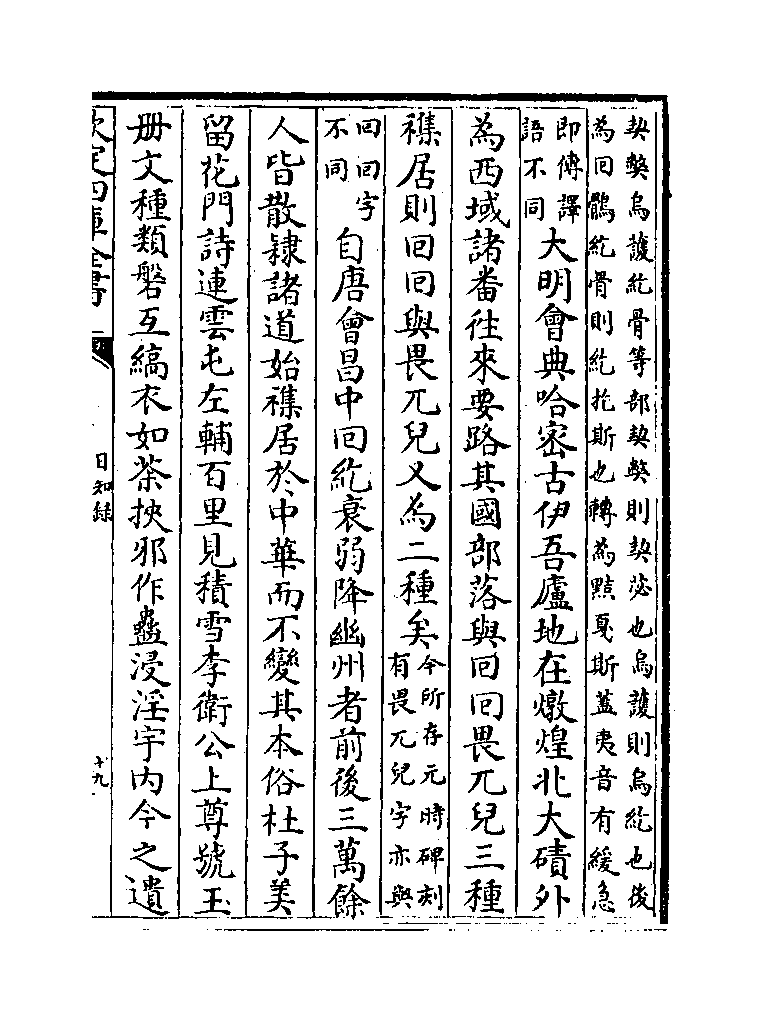 契弊烏護紇骨等部契弊則契苾也烏護則烏紇也後
為回鶻紇骨則紇扢斯也轉為黠戛斯蓋夷音有緩急
即傳譯
語不同
大明會典哈密古伊吾廬地在燉煌北大磧外
為西域諸畨往來要路其國部落與回回畏兀兒三種
襍居則回回與畏兀兒又為二種矣
今所存元時碑刻
有畏兀兒字亦與
回回字
不同
自唐會昌中回紇衰弱降幽州者前後三萬餘
人皆散隸諸道始襍居於中華而不變其本俗杜子美
留花門詩連雲屯左輔百里見積雪李衛公上尊號玉
册文種類磐互縞衣如荼挾邪作蠱浸淫宇内今之遺
欽定四庫全書
日知錄
十九